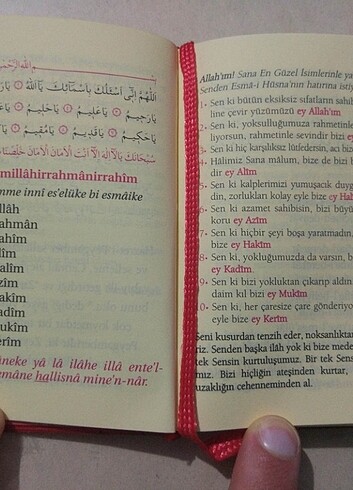 اَللّٰهُمَّ اِنّٖى اَسْئَلُكَ بِاَسْمَٓائِكَ يَٓا اَللّٰهُ
يَا رَحٖيمُ يَا عَلٖيمُ يَا حَلٖيمُ يَا
يَا حَكٖيمُ يَا قَدٖيمُ يَا مُقٖيمُ يَا
سُبْحَانَكَ يَا لَٓا اِلٰهَ اِلَّٓا اَنْتَ الْاَمَانُ الْاَمَانُ خَلِّصْنَا
millâhirrahmânirrahîm
mme innî es'elüke bi esmâike
llâh
ahmân
ahîm
lîm
alîm
zîm
akîm
adîm
ukîm
erîm
âneke yâ lâ ilâhe illâ ente'l-
emâne hallisnâ mine'n-nâr.
Allah'ım! Sana En Güzel İsimlerinle ya
Senden Esmâ-i Hüsna'nın hatırına istiy
1- Sen ki bütün eksiksiz sıfatların sahib
line çevir yüzümüzü ey Allah'ım
2- Sen ki, yoksulluğumuza rahmetinle
liyorsun, rahmetinle sevindir bizi ey
3- Sen ki hiç karşılıksız lütfedersin, acı biz
4- Hâlimiz Sana mâlum, bize de bizi l
dir ey Alîm
5- Sen ki kalplerimizi yumuşacık duyg
din, zorlukları kolay eyle bize ey Ha
6- Sen ki azamet sahibisin, bizi büyü
koru ey Azîm
7- Sen ki hiçbir şeyi boşa yaratmadın,
bize ey Hakîm
8- Sen ki, yokluğumuzda da varsın, b
ey Kadîm.
9- Sen ki bizi yokluktan çıkarıp aldın
daim kıl bizi ey Mukîm
10- Sen ki, her çaresize çare gönderey
eyle bize ey Kerîm
Seni kusurdan tenzih eder, noksanlıktar
riz. Senden başka ilâh yok ki bize mede
Tek Sensin kurtuluşumuz. Bir tek Sens
mız. Bizi hiçliğin ateşinden kurtar,
uzaklığın cehenneminden al.